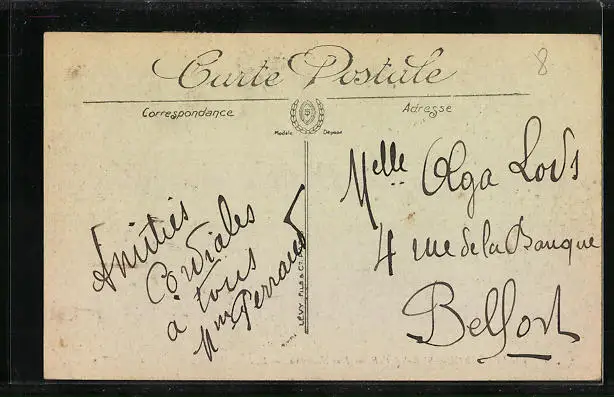 8
Carte Postale
Correspondance
Adresse
Modèle Déposé
Amitiés
Cordiales
à tous
Mme Perraud
LÉVY FILS & Cie
Melle Olga Lods
4 rue de la Banque
Belfort